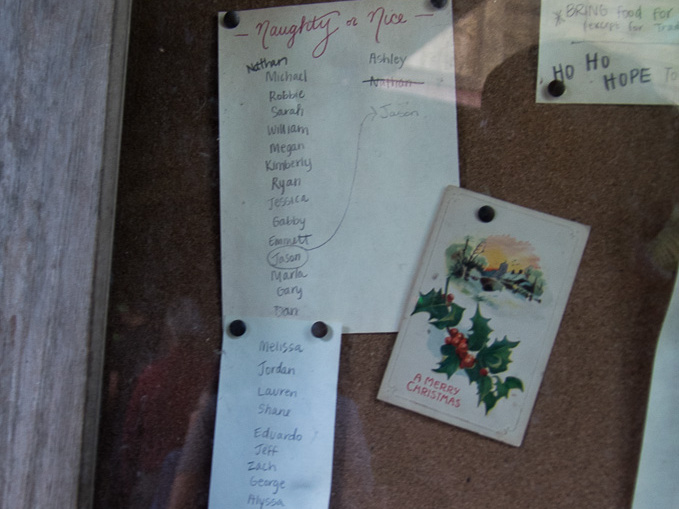 — Naughty or Nice —
Nathan
Michael
Robbie
Sarah
William
Megan
Kimberly
Ryan
Jessica
Gabby
Emmett
Jason
Marla
Gary
Dan
Ashley
Nathan
Jason
Melissa
Jordan
Lauren
Shane
Eduardo
Jeff
Zach
George
Alyssa
A MERRY
CHRISTMAS
*BRING Food for
HO HO
HOPE TO